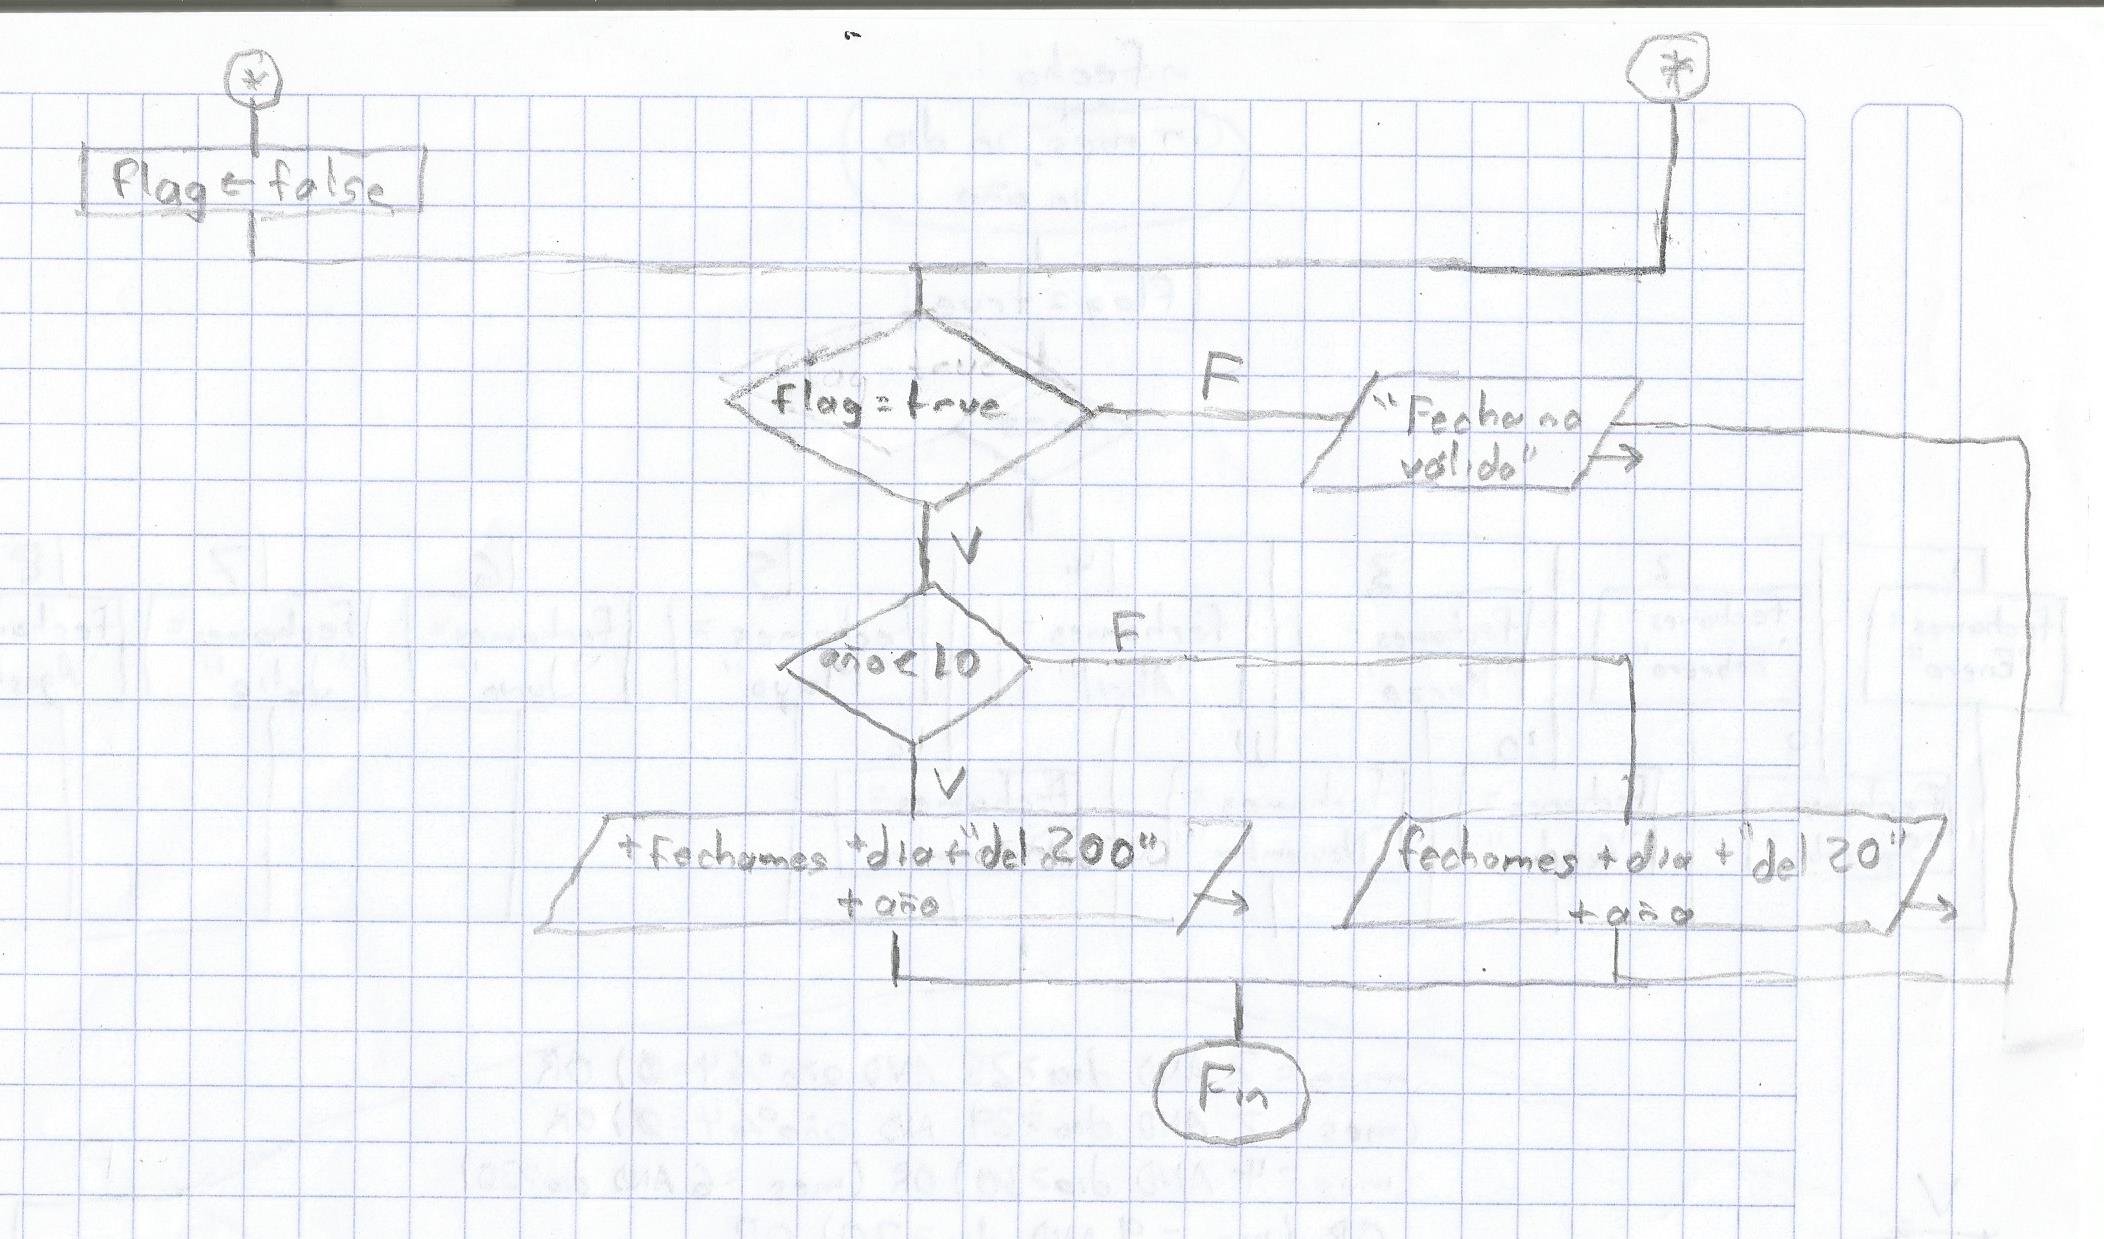 *
*
flag ← false
flag = true
F
"Fecha no
válida"
V
año < 10
F
V
+ fechames + dia + "del 200"
+ año
fechames + dia + "del 20"
+ año
Fin